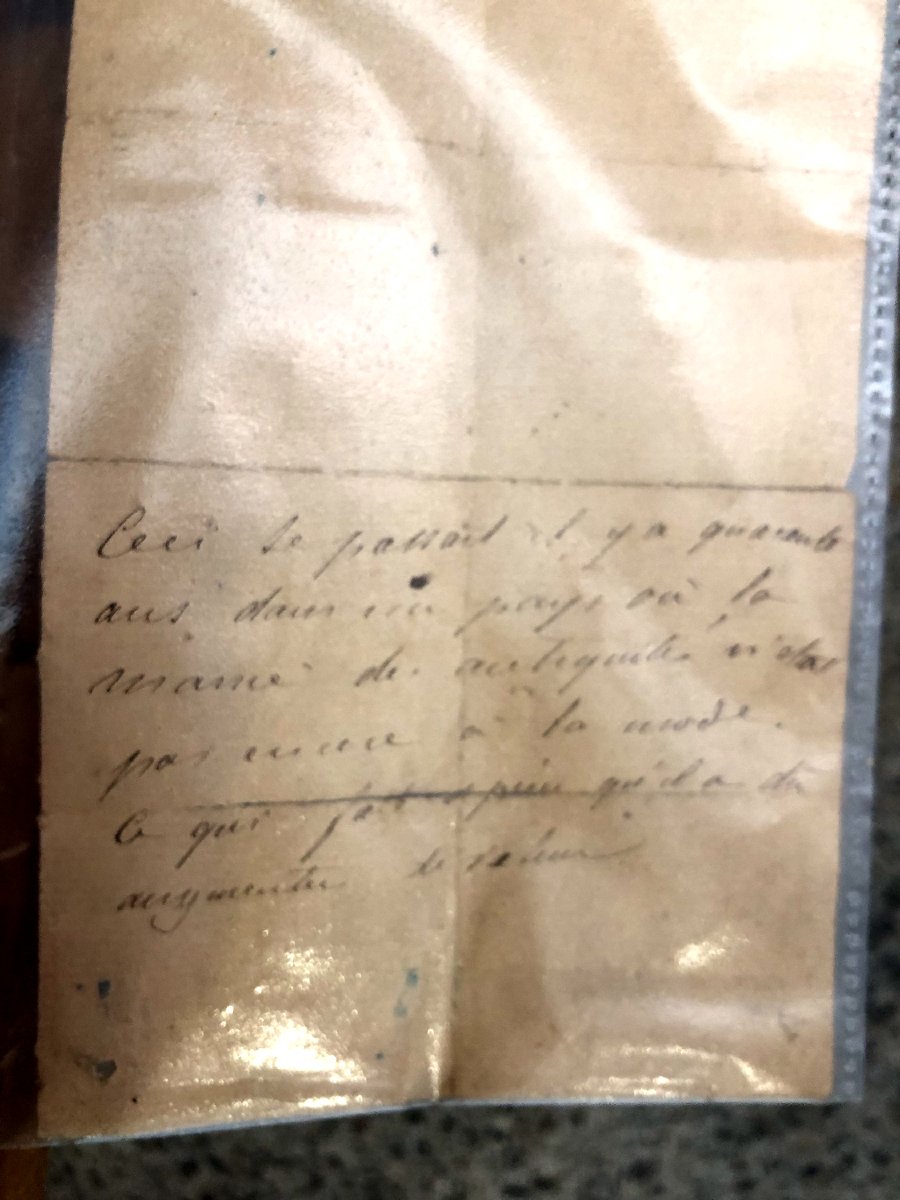 Ceci se passait il y a quarante
ans dans un pays où la
manie des antiquités n'était
pas encore à la mode.
Ce qui fait qu'il a dû
augmenter de valeur.